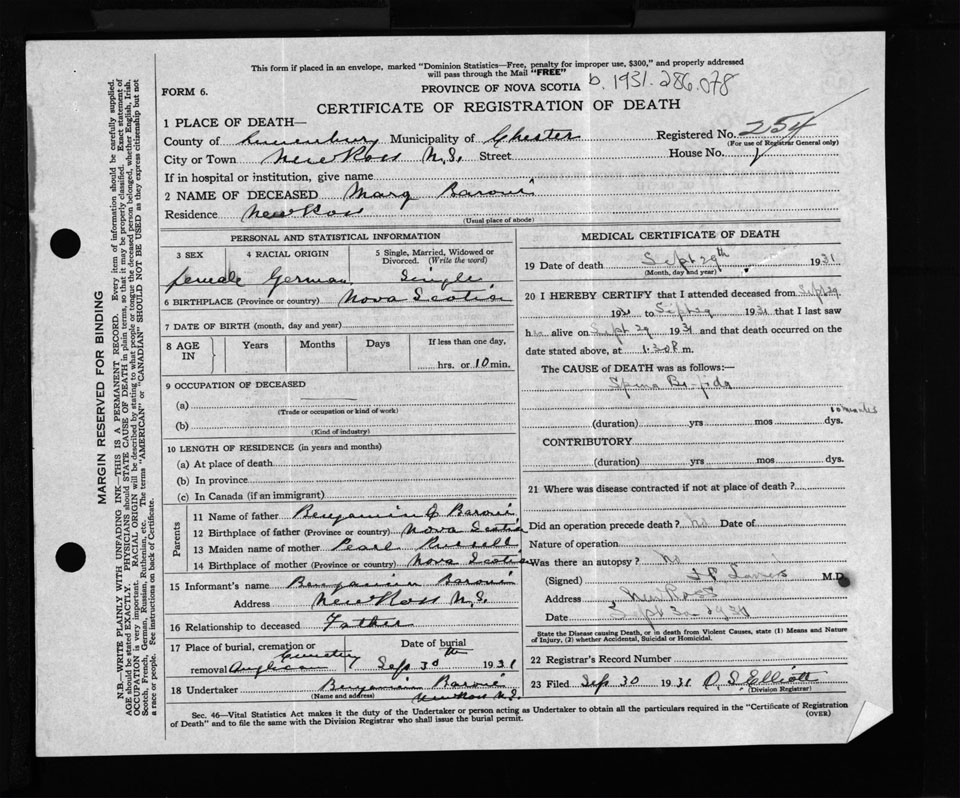 This form if placed in an envelope, marked "Dominion Statistics—Free, penalty for improper use, $300," and properly addressed
will pass through the Mail "FREE"
FORM 6.
PROVINCE OF NOVA SCOTIA
b. 1931.286.078
CERTIFICATE OF REGISTRATION OF DEATH
1 PLACE OF DEATH—
County of Lunenburg Municipality of Chester Registered No. 254
(For use of Registrar General only)
City or Town New Ross N.S. Street House No.
If in hospital or institution, give name
2 NAME OF DECEASED Mary Baroni
Residence New Ross
(Usual place of abode)
PERSONAL AND STATISTICAL INFORMATION
3 SEX 4 RACIAL ORIGIN 5 Single, Married, Widowed or
Divorced. (Write the word)
female German Single
6 BIRTHPLACE (Province or country) Nova Scotia
7 DATE OF BIRTH (month, day and year)
8 AGE IN Years Months Days If less than one day,
hrs. or 10 min.
9 OCCUPATION OF DECEASED
(a)
(Trade or occupation or kind of work)
(b)
(Kind of industry)
10 LENGTH OF RESIDENCE (in years and months)
(a) At place of death
(b) In province
(c) In Canada (if an immigrant)
Parents
11 Name of father Benjamin Baroni
12 Birthplace of father (Province or country) Nova Scotia
13 Maiden name of mother Pearl Russell
14 Birthplace of mother (Province or country) Nova Scotia
15 Informant's name Benjamin Baroni
Address New Ross N.S.
16 Relationship to deceased Father
17 Place of burial, cremation or Date of burial
removal Anglican Cemetery Sep 30th 1931
18 Undertaker Benjamin Baroni
(Name and address) New Ross N.S.
MEDICAL CERTIFICATE OF DEATH
19 Date of death Sept 29th 1931
(Month, day and year)
20 I HEREBY CERTIFY that I attended deceased from Sept 29
1931 to Sept 29 1931 that I last saw
her alive on Sept 29 1931 and that death occurred on the
date stated above, at 1.30 P m.
The CAUSE of DEATH was as follows:—
Spina Bifida
10 minutes
(duration) yrs mos dys.
CONTRIBUTORY
(duration) yrs mos dys.
21 Where was disease contracted if not at place of death?
Did an operation precede death? no Date of
Nature of operation
Was there an autopsy? no
(Signed) M.D.
Address New Ross
Date Sept 30 1931
State the Disease causing Death, or in death from Violent Causes, state (1) Means and Nature
of Injury, (2) whether Accidental, Suicidal or Homicidal.
22 Registrar's Record Number
23 Filed Sep 30 1931 O. S. Elliott
(Division Registrar)
Sec. 46—Vital Statistics Act makes it the duty of the Undertaker or person acting as Undertaker to obtain all the particulars required in the "Certificate of Registration
of Death" and to file the same with the Division Registrar who shall issue the burial permit.
(OVER)
MARGIN RESERVED FOR BINDING
N.B.—WRITE PLAINLY WITH UNFADING INK—THIS IS A PERMANENT RECORD. Every item of information should be carefully supplied.
AGE should be stated EXACTLY. PHYSICIANS should STATE CAUSE OF DEATH in plain terms, so that it may be properly classified. Exact statement of
OCCUPATION is very important. RACIAL ORIGIN will be described by stating to what people or tongue the deceased person belonged, whether English, Irish,
Scotch, French, German, Russian, Ruthenian, etc. The terms "AMERICAN" or "CANADIAN" SHOULD NOT BE USED as they express citizenship but not
a race or people. See instructions on back of Certificate.